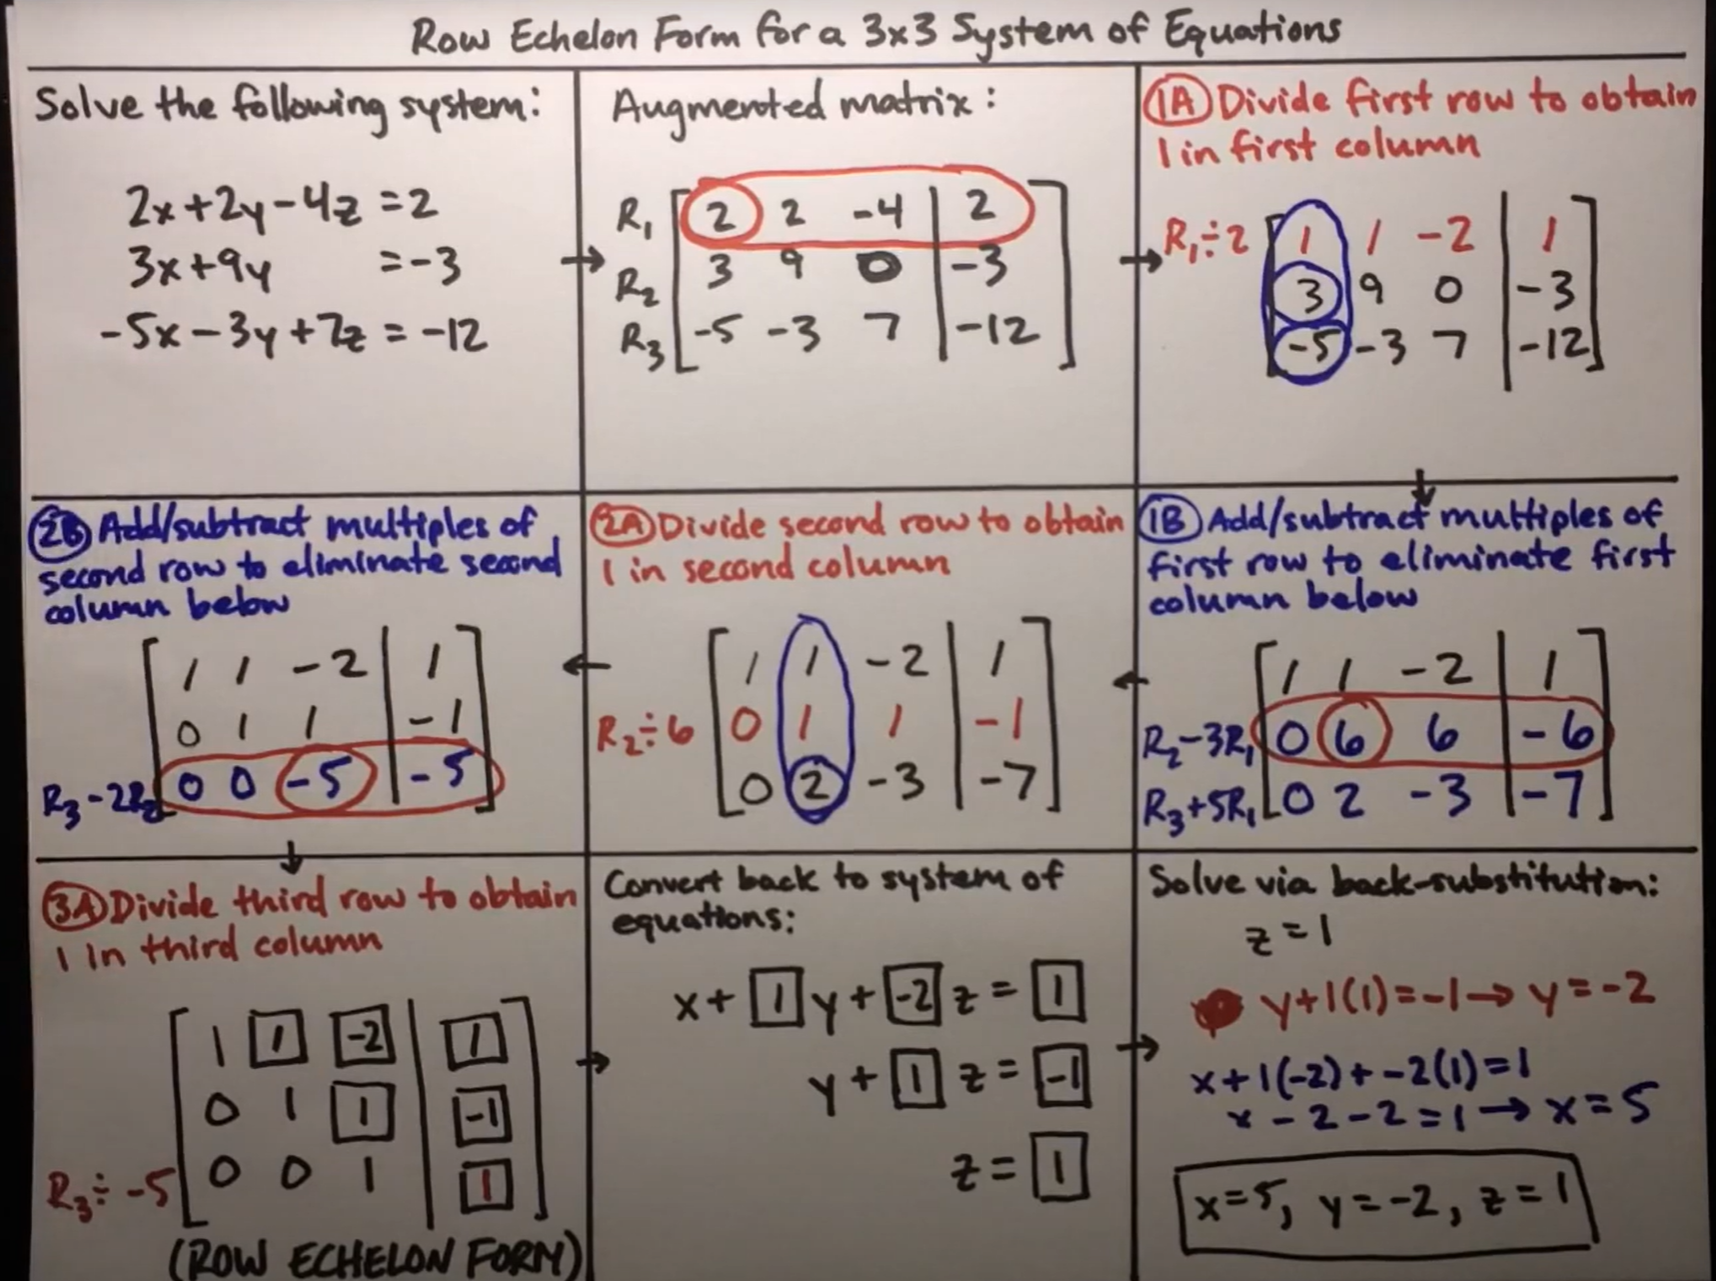 Row Echelon Form for a 3x3 System of Equations
Solve the following system:
2x+2y-4z=2
3x+9y =-3
-5x-3y+7z=-12
Augmented matrix:
R₁ 2 2 -4 | 2
R₂ 3 9 0 | -3
R₃ -5 -3 7 | -12
1A Divide first row to obtain
1 in first column
R₁÷2 1 1 -2 | 1
3 9 0 | -3
-5 -3 7 | -12
1B Add/subtract multiples of
first row to eliminate first
column below
1 1 -2 | 1
R₂-3R₁ 0 6 6 | -6
R₃+5R₁ 0 2 -3 | -7
2A Divide second row to obtain
1 in second column
1 1 -2 | 1
R₂÷6 0 1 1 | -1
0 2 -3 | -7
2B Add/subtract multiples of
second row to eliminate second
column below
1 1 -2 | 1
0 1 1 | -1
R₃-2R₂ 0 0 -5 | -5
3A Divide third row to obtain
1 in third column
1 1 -2 | 1
0 1 1 | -1
R₃÷-5 0 0 1 | 1
(ROW ECHELON FORM)
Convert back to system of
equations:
x+1y+-2z=1
y+1z=-1
z=1
Solve via back-substitution:
z=1
y+1(1)=-1→y=-2
x+1(-2)+-2(1)=1
x-2-2=1→x=5
x=5, y=-2, z=1